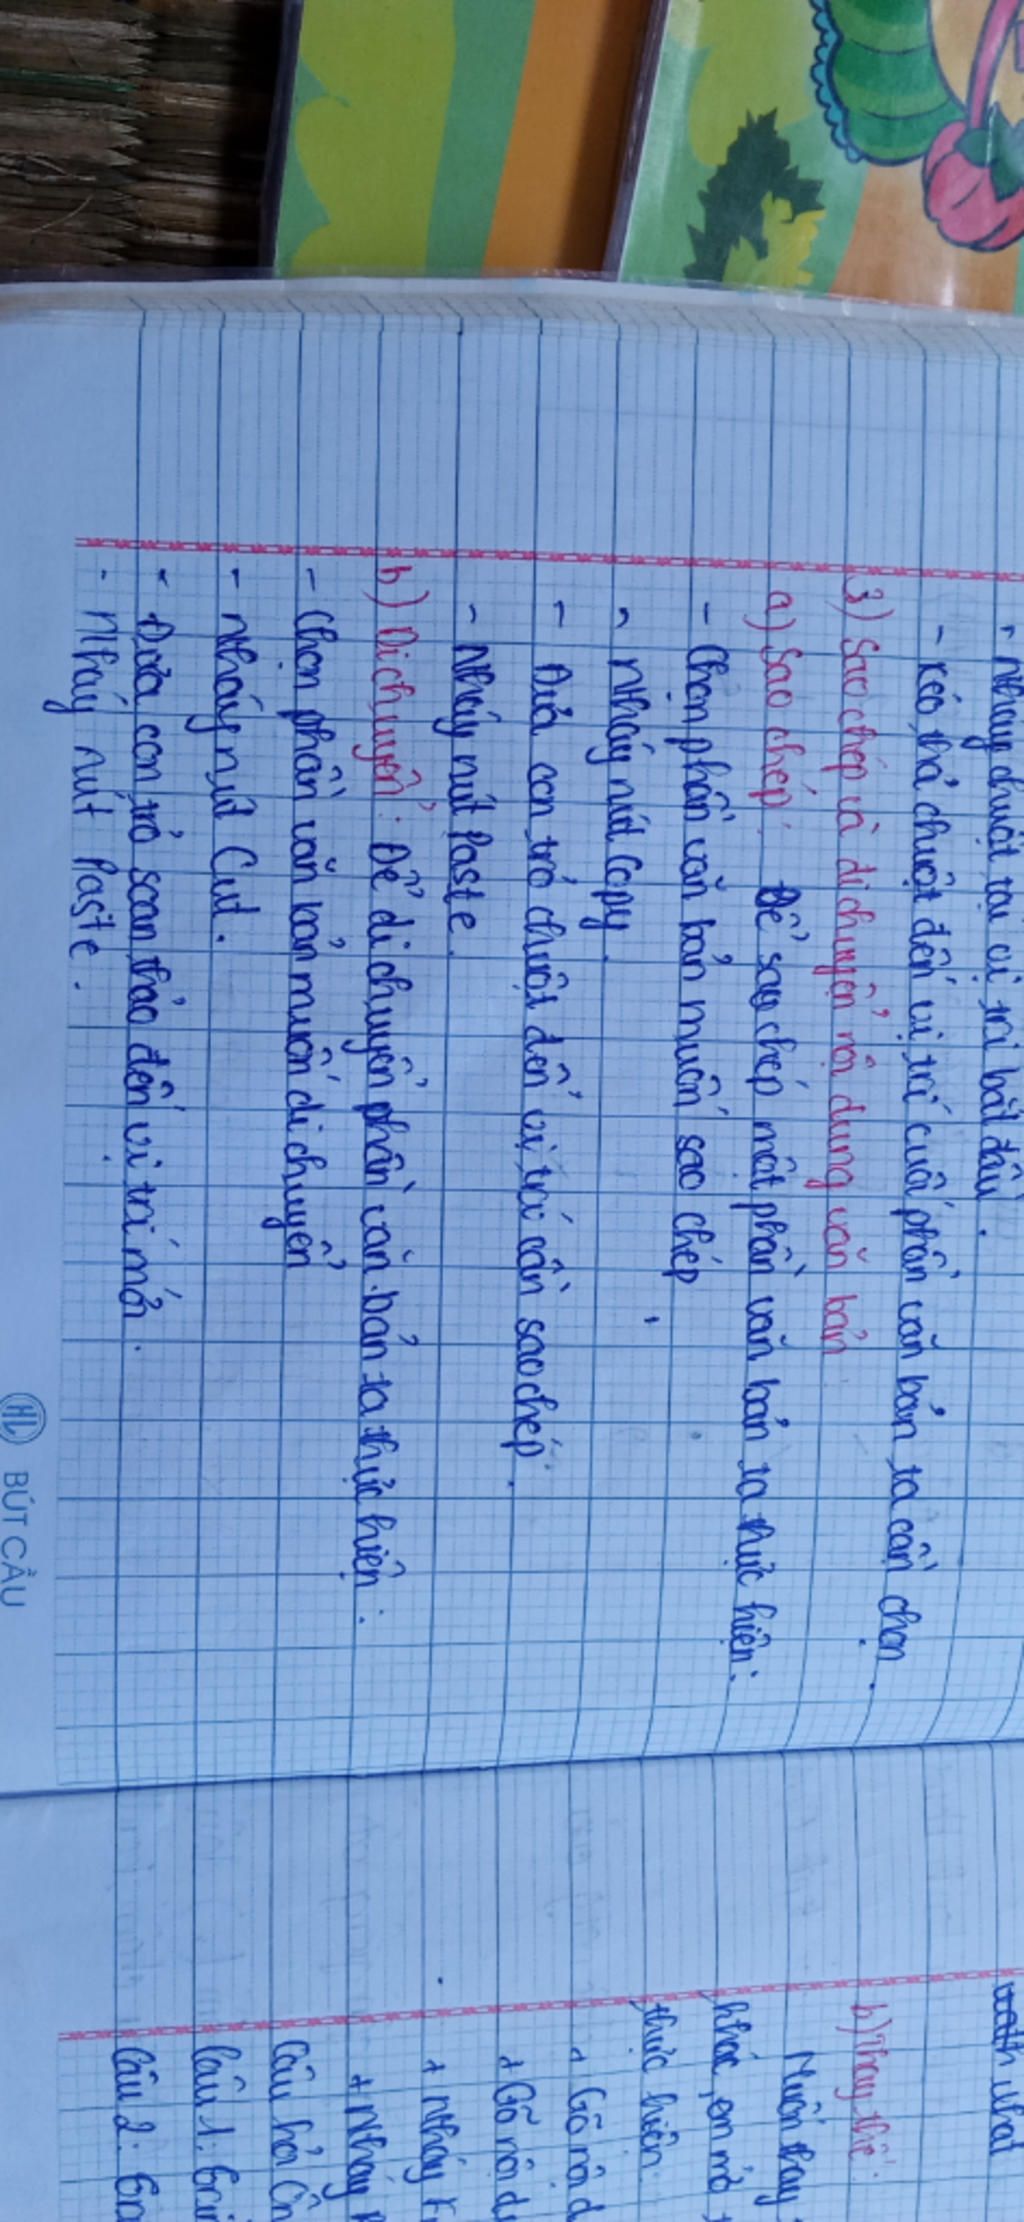 - Nháy chuột tại vị trí bắt đầu.
- Kéo thả chuột đến vị trí cuối phần văn bản ta cần chọn.
3) Sao chép và di chuyển nội dung văn bản
a) Sao chép: Để sao chép một phần văn bản ta thực hiện:
- Chọn phần văn bản muốn sao chép
- Nháy nút Copy.
- Đưa con trỏ chuột đến vị trí cần sao chép.
- Nháy nút Paste.
b) Di chuyển: Để di chuyển phần văn bản ta thực hiện:
- Chọn phần văn bản muốn di chuyển
- Nháy nút Cut.
- Đưa con trỏ soạn thảo đến vị trí mới.
- Nháy nút Paste.
HL BÚT CẦU
nhất
b) Thay thế:
Muốn thay
khác, em mở
thực hiện:
+ Gõ nội d
+ Gõ nội d
+ Nháy
+ Nháy
Câu hỏi
Câu 1:
Câu 2: